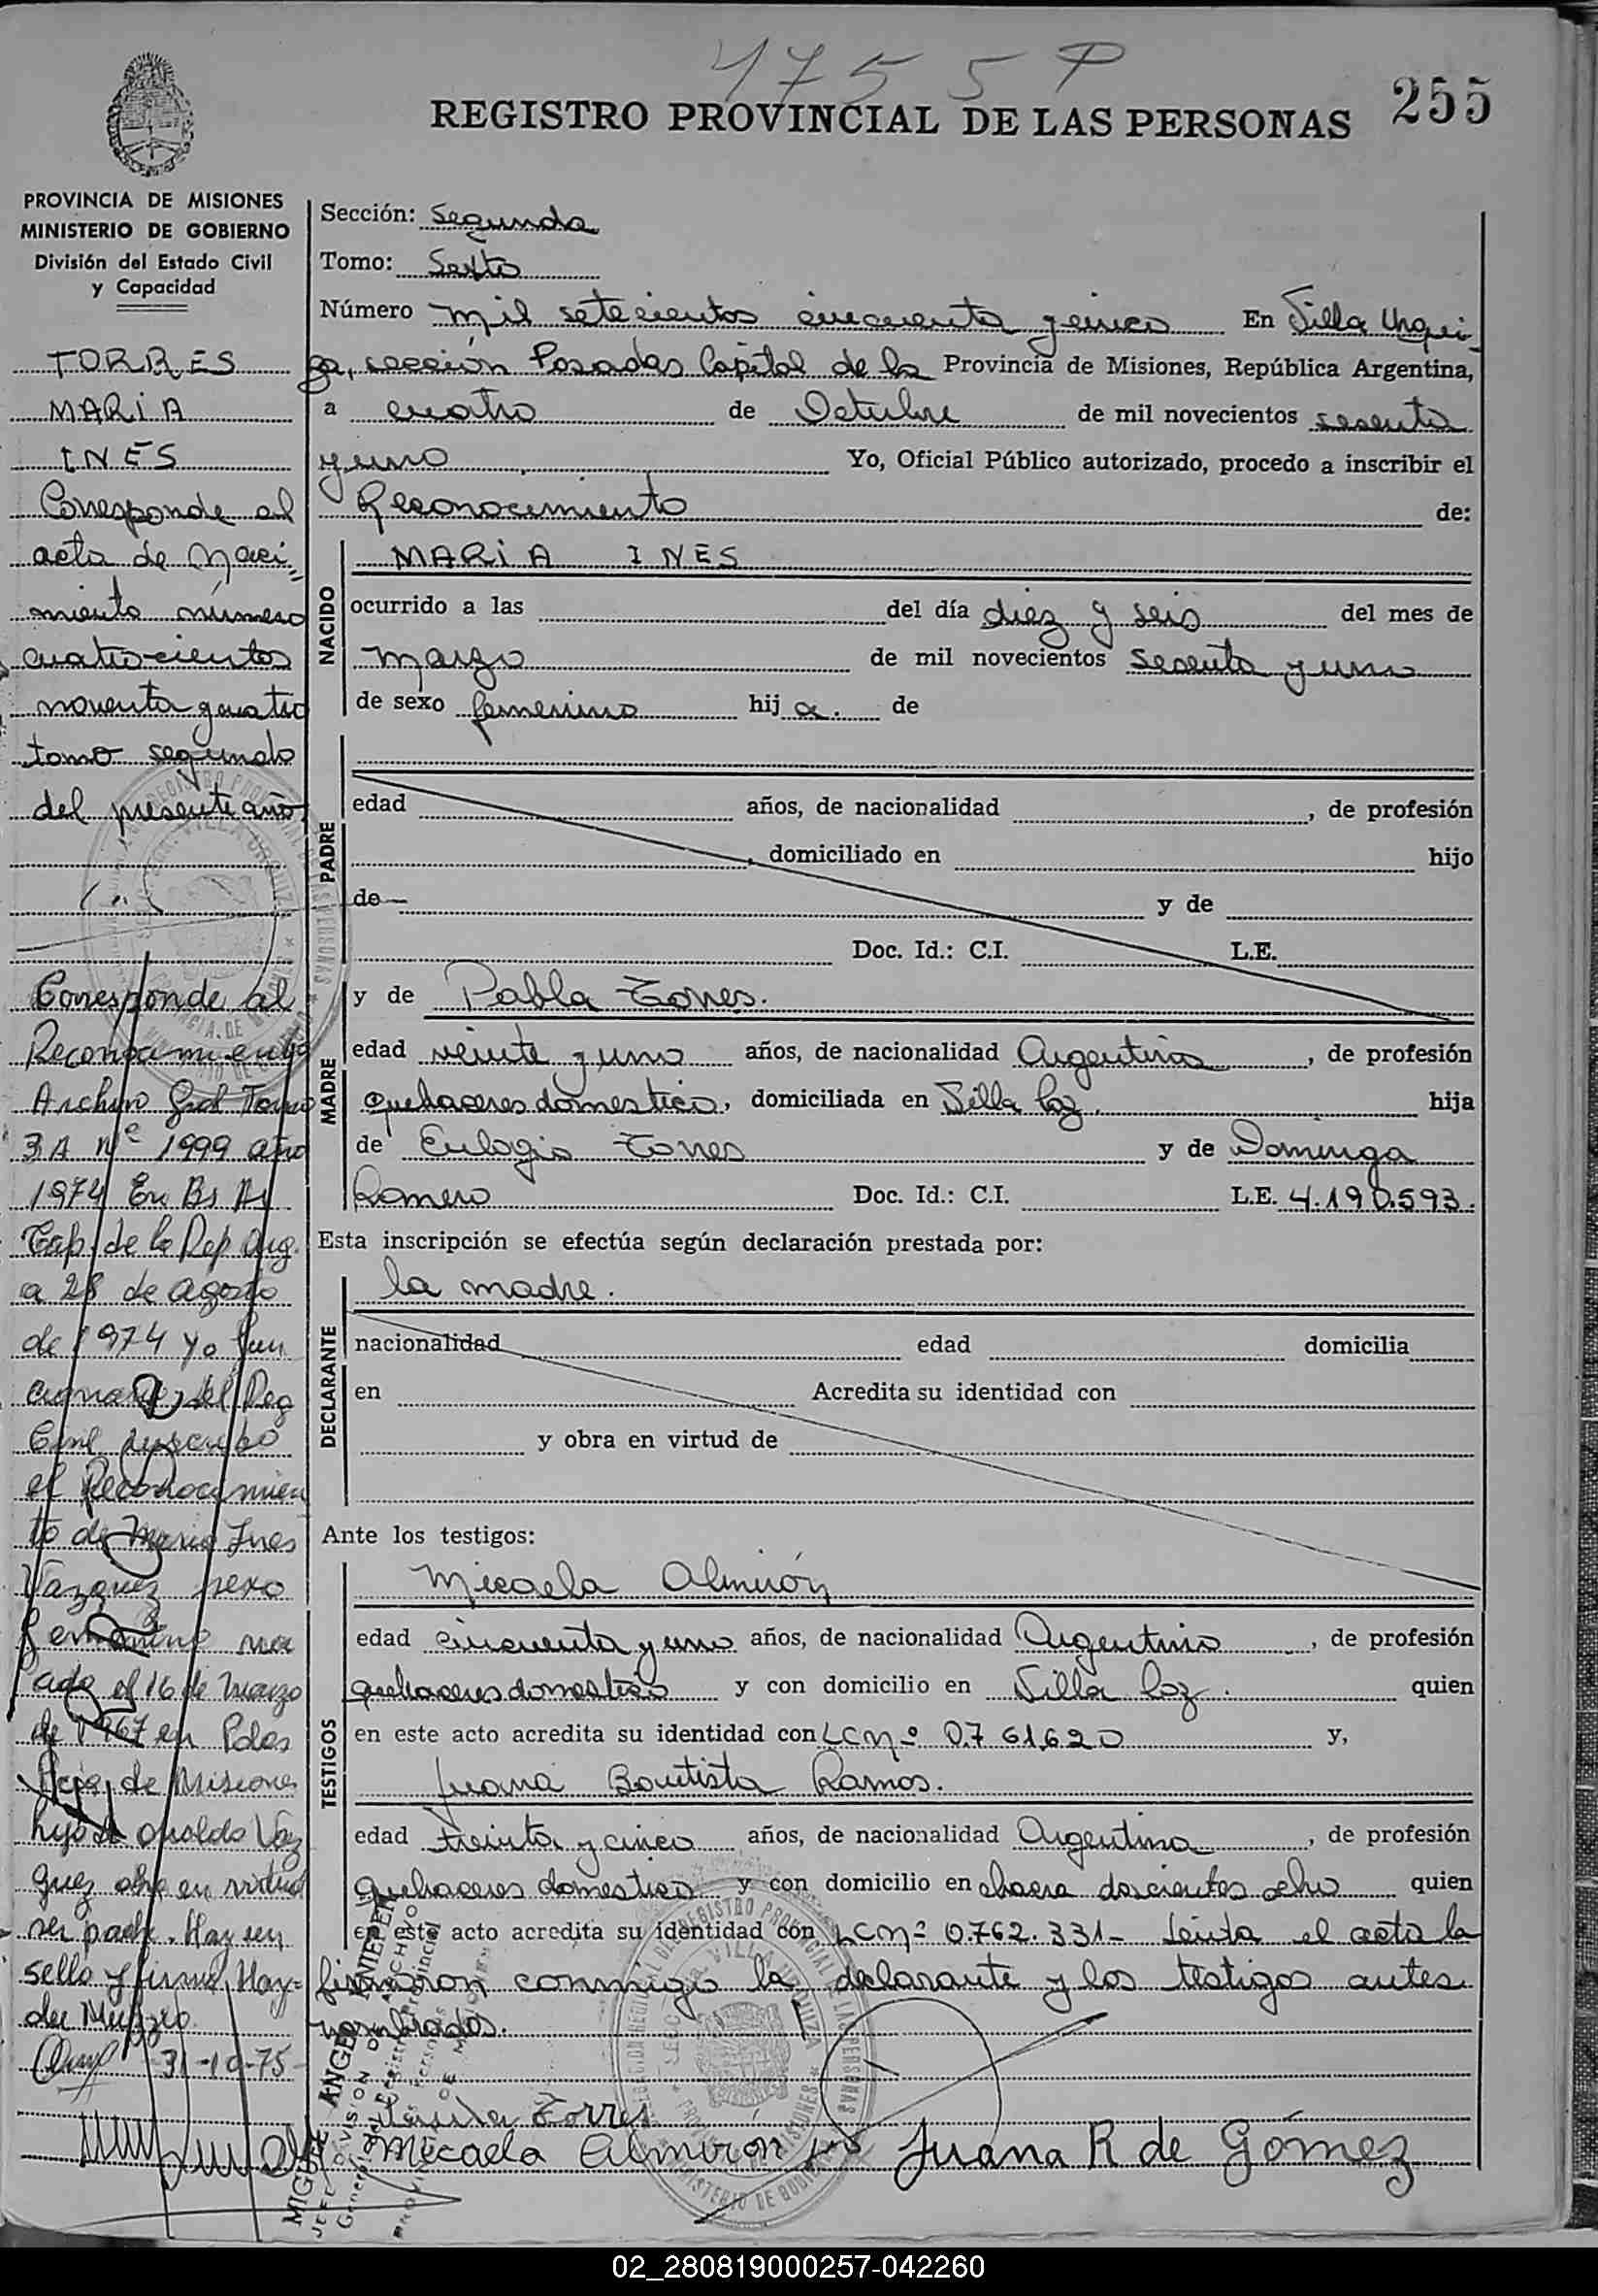 255
REGISTRO PROVINCIAL DE LAS PERSONAS
PROVINCIA DE MISIONES
MINISTERIO DE GOBIERNO
División del Estado Civil
y Capacidad
TORRES
MARIA
INES
Corresponde al
acta de Naci-
miento número
cuatrocientos
noventa y cuatro
tomo segundo
del presente año
Corresponde al
Reconocimiento
Archivo Gral Tomo
3A Nº 1999 año
1974 En Bs As
Cap. de la Rep Arg.
a 28 de agosto
de 1974 Yo fun
cionario del Reg
Civil inscribo
el Reconocimien
to de Maria Ines
Vazquez sexo
femenino na
cida el 16 de Marzo
de 1967 en Pdas
Pcia de Misiones
hijo de Osvaldo Vaz
quez obra en virtud
ser padre. Hay un
sello y firma Hay-
31-10-75
Sección: Segunda
Tomo: Sexto
Número mil setecientos cincuenta y cinco En Villa Urqui-
za, sección Posadas Capital de la Provincia de Misiones, República Argentina,
a cuatro de Octubre de mil novecientos sesenta
y uno Yo, Oficial Público autorizado, procedo a inscribir el
Reconocimiento de:
NACIDO
MARIA INES
ocurrido a las del día diez y seis del mes de
marzo de mil novecientos sesenta y uno
de sexo femenino hija. de
PADRE
edad años, de nacionalidad , de profesión
, domiciliado en hijo
de y de
Doc. Id.: C.I. L.E.
MADRE
y de Pabla Torres.
edad veinte y uno años, de nacionalidad Argentina , de profesión
quehaceres domestico, domiciliada en Villa Coz. hija
de Eulogio Torres y de Dominga
Romero Doc. Id.: C.I. L.E. 4.190.593.
Esta inscripción se efectúa según declaración prestada por:
DECLARANTE
la madre.
nacionalidad edad domicilia
en Acredita su identidad con
y obra en virtud de
Ante los testigos:
TESTIGOS
Micaela Almirón
edad cincuenta y uno años, de nacionalidad Argentina , de profesión
quehaceres domestico y con domicilio en Villa Coz. quien
en este acto acredita su identidad con LC Nº 0.761.620 y,
Juana Bautista Ramos.
edad treinta y cinco años, de nacionalidad Argentina , de profesión
quehaceres domestico y con domicilio en chacra doscientos ocho quien
en este acto acredita su identidad con LC Nº 0.762.331- Leída el acta la
firmaron conmigo la declarante y los testigos antes
nombrados.
Torres
Micaela Almiron Juana R de Gómez
02_280819000257-042260